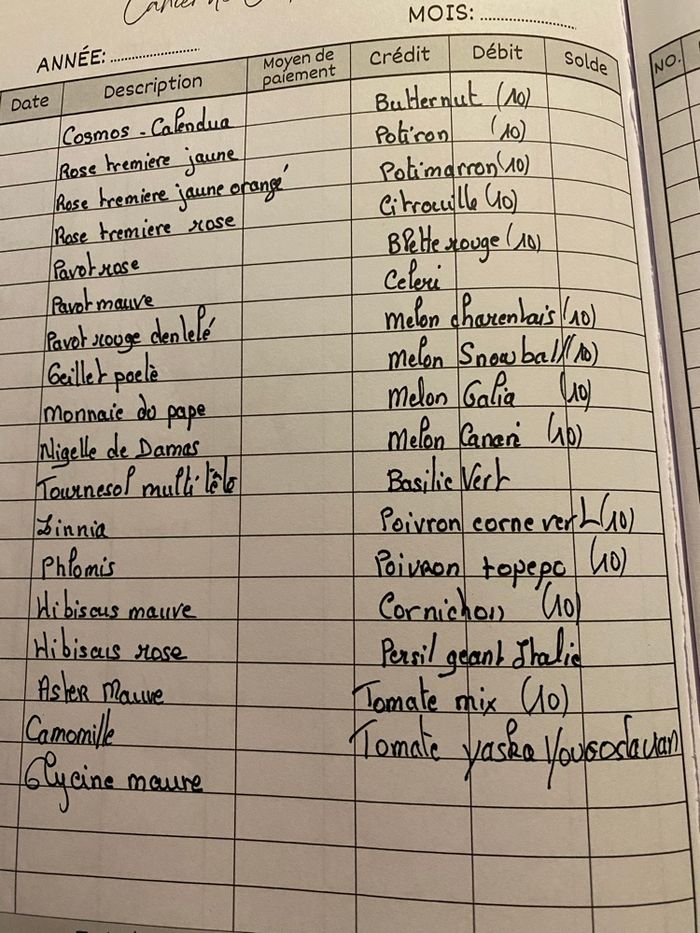 MOIS: ..............
ANNÉE: ..............
Date Description Moyen de paiement Crédit Débit Solde
NO.
Cosmos - Calendua
Rose tremiere jaune
Rose tremiere jaune orangé
Rose tremiere rose
Pavot rose
Pavot mauve
Pavot rouge dentelé
Geillet poetè
Monnaie du pape
Nigelle de Damas
Tournesol multi tête
Zinnia
Phlomis
Hibiscus mauve
Hibiscus rose
Aster Mauve
Camomille
Glycine mauve
Butternut (10)
Potiron (10)
Potimarron (10)
Citrouille (10)
Blette rouge (10)
Celeri
Melon charentais (10)
Melon Snowball (10)
Melon Galia (10)
Melon Canari (10)
Basilic Vert
Poivron corne vert (10)
Poivron topepo (10)
Cornichon (10)
Persil geant Italie
Tomate mix (10)
Tomate yaska